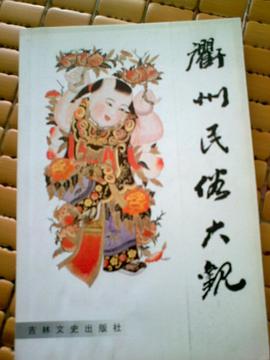 衢州民俗大觀
吉林文史出版社